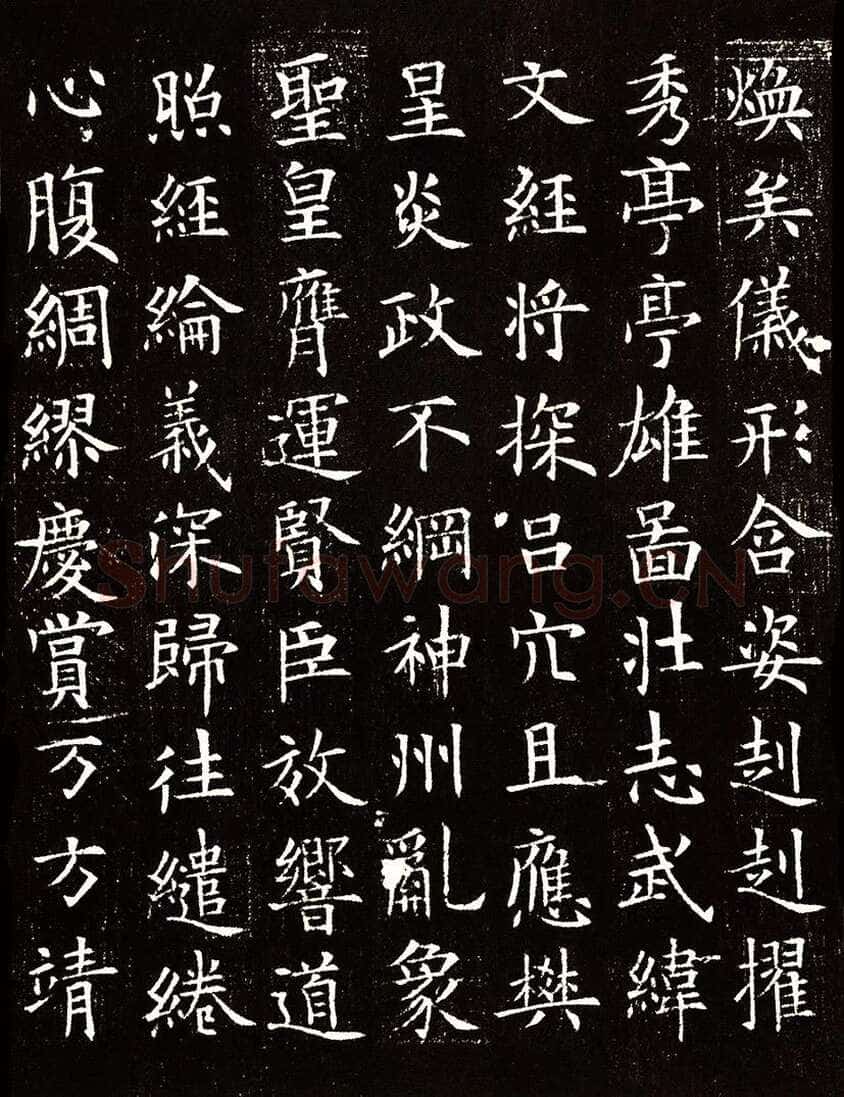 煥矣儀形含姿赳赳擢
秀亭亭雄啚壮志武緯
文經将探吕穴且應樊
星炎政不綱神州亂象
聖皇膺運賢臣效響道
照經綸義深歸往繾綣
心腹綢繆慶賞万方靖
Shufawang.CN